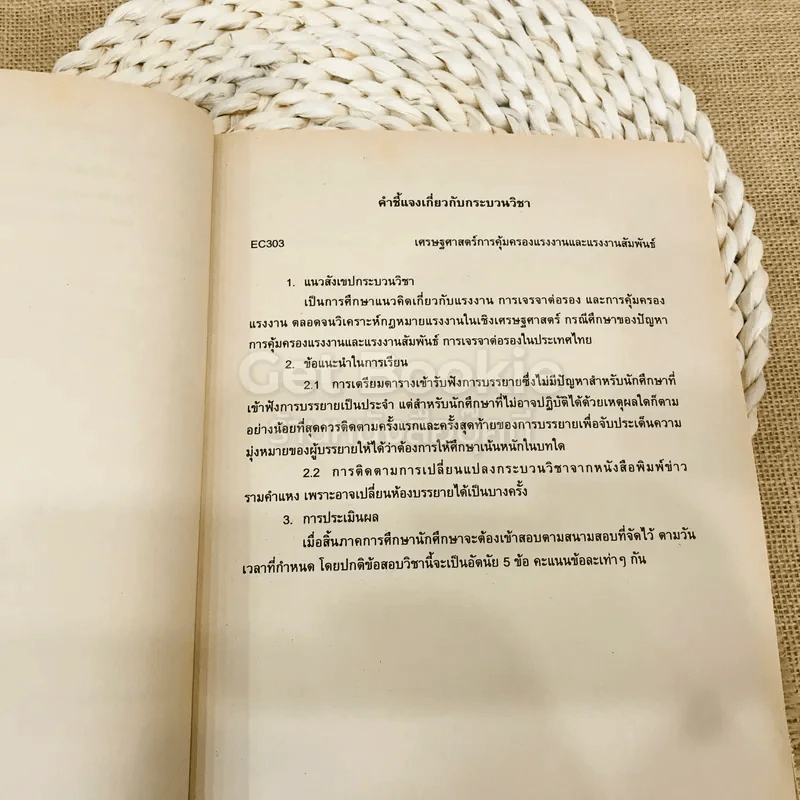 คำชี้แจงเกี่ยวกับกระบวนวิชา
EC303 เศรษฐศาสตร์การคุ้มครองแรงงานและแรงงานสัมพันธ์
1. แนวสังเขปกระบวนวิชา
เป็นการศึกษาแนวคิดเกี่ยวกับแรงงาน การเจรจาต่อรอง และการคุ้มครอง
แรงงาน ตลอดจนวิเคราะห์กฎหมายแรงงานในเชิงเศรษฐศาสตร์ กรณีศึกษาของปัญหา
การคุ้มครองแรงงานและแรงงานสัมพันธ์ การเจรจาต่อรองในประเทศไทย
2. ข้อแนะนำในการเรียน
Get Bookie
2.1 การเตรียมตารางเข้ารับฟังการบรรยายซึ่งไม่มีปัญหาสำหรับนักศึกษาที่
เข้าฟังการบรรยายเป็นประจำ แต่สำหรับนักศึกษาที่ไม่อาจปฏิบัติได้ด้วยเหตุผลใดก็ตาม
อย่างน้อยที่สุดควรติดตามครั้งแรกและครั้งสุดท้ายของการบรรยายเพื่อจับประเด็นความ
มุ่งหมายของผู้บรรยายให้ได้ว่าต้องการให้ศึกษาเน้นหนักในบทใด
2.2 การติดตามการเปลี่ยนแปลงกระบวนวิชาจากหนังสือพิมพ์ข่าว
รามคำแหง เพราะอาจเปลี่ยนห้องบรรยายได้เป็นบางครั้ง
3. การประเมินผล
เมื่อสิ้นภาคการศึกษานักศึกษาจะต้องเข้าสอบตามสนามสอบที่จัดไว้ ตามวัน
เวลาที่กำหนด โดยปกติข้อสอบวิชานี้จะเป็นอัตนัย 5 ข้อ คะแนนข้อละเท่าๆ กัน